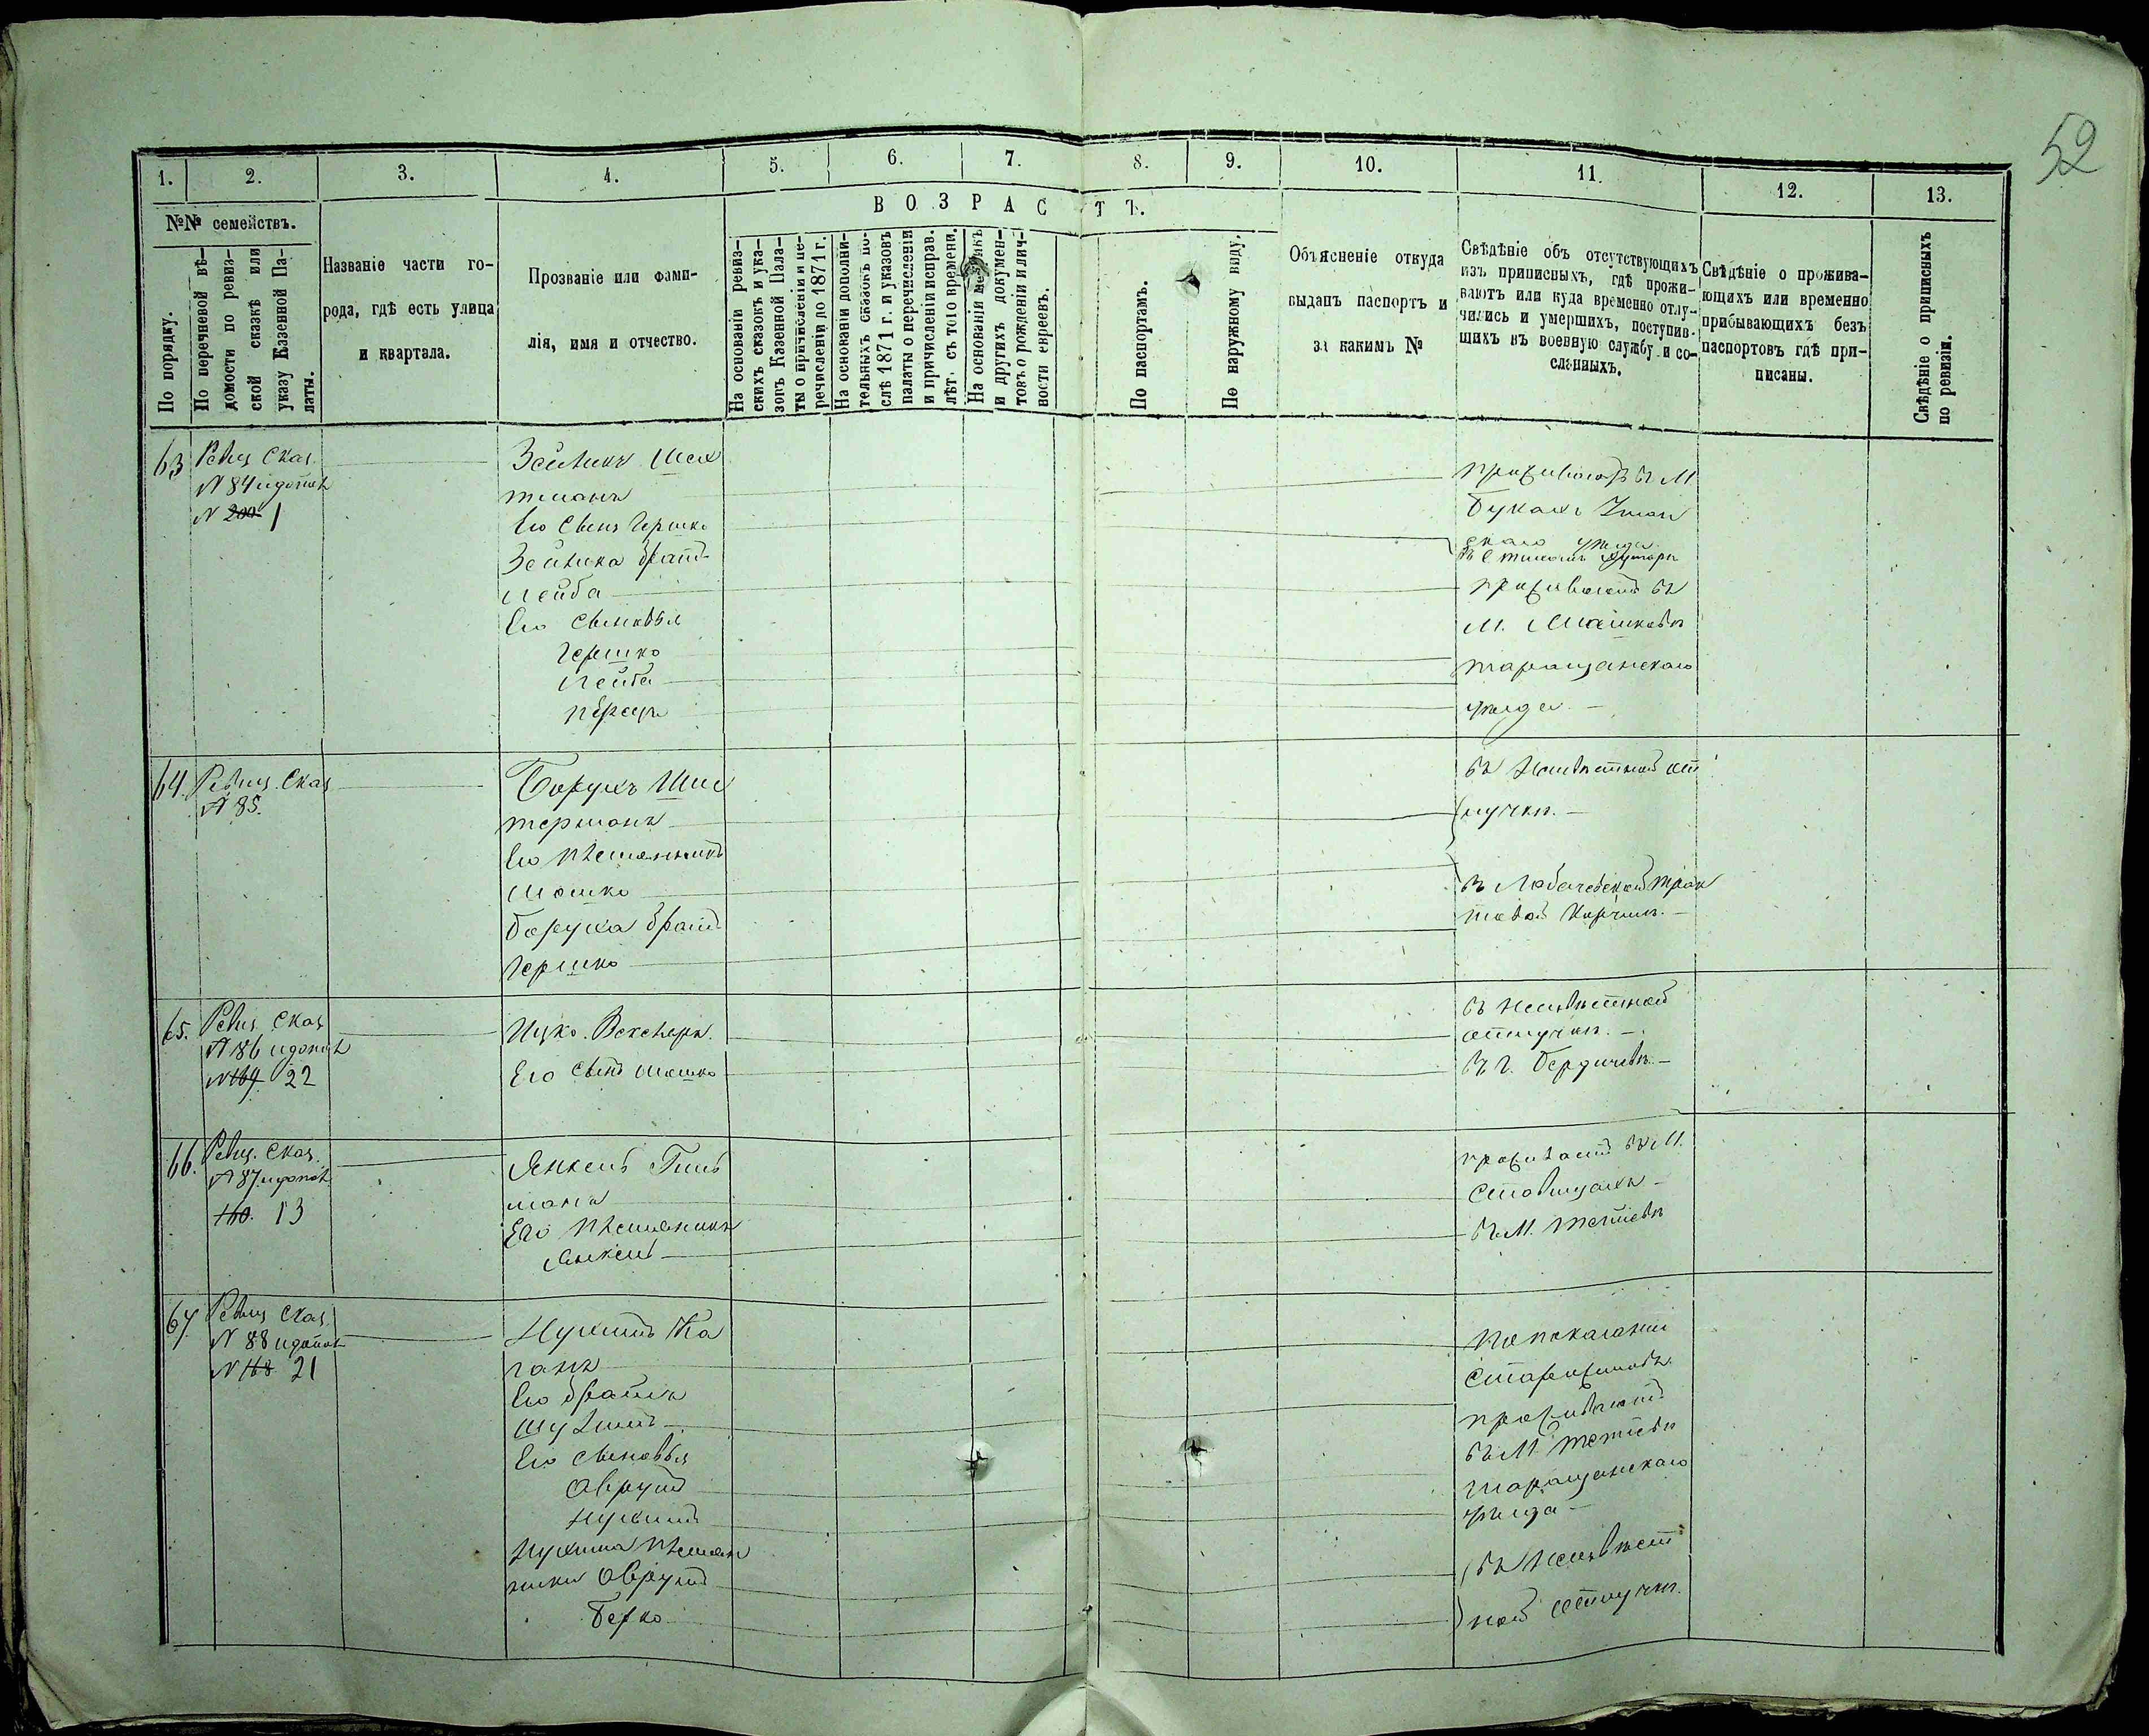 52
1. 2. 3. 4. 5. 6. 7. 8. 9. 10. 11. 12. 13.
№№ семействъ.
В О З Р А С Т Ъ.
По порядку.
По перечневой вѣ-
домости по ревиз-
ской сказкѣ или
указу Казенной Па-
латы.
Названіе части го-
рода, гдѣ есть улица
и квартала.
Прозваніе или фами-
лія, имя и отчество.
На основаніи ревиз-
скихъ сказокъ и ука-
зовъ Казенной Пала-
ты о причисленіи и пе-
речисленіи до 1871 г.
На основаніи дополни-
тельныхъ сказокъ по-
слѣ 1871 г. и указовъ
палаты о перечисленіи
и причисленіи исправ.
лѣт. съ того времени.
На основаніи метрикъ
и другихъ докумен-
товъ о рожденіи и лич-
ности евреевъ.
По паспортамъ.
По наружному виду.
Объясненіе откуда
выданъ паспортъ и
за какимъ №
Свѣдѣніе объ отсутствующихъ
изъ приписныхъ, гдѣ прожи-
ваютъ или куда временно отлу-
чились и умершихъ, поступив-
щихъ въ военную службу и со-
сланныхъ.
Свѣдѣніе о прожива-
ющихъ или временно
прибывающихъ безъ
паспортовъ гдѣ при-
писаны.
Свѣдѣніе о приписныхъ
по ревизіи.
63 Ревиз Сказ.
N 84 и допол
N 200 1
Его сынъ Гершко
брат
Лейба
Его сыновья
Гершко
Лейба
проживаютъ въ М
уезда
проживаютъ въ
М.
таращанскаго
уезда —
64. Ревиз. Сказ
N 85.
Борухъ
терманъ
Его племянникъ
Мошко
Боруха братъ
Гершко
въ неизвѣстной от
лучкѣ. —
65. Ревиз. Сказ
N 86 и допол
N 169 22
Ицко Векслеръ.
Его сынъ Мошко
въ неизвѣстной
отлучкѣ. —
въ г. Бердичевѣ. —
66. Ревиз. Сказ.
N 87 и допол
160. 13
Янкель
манъ
Его племянникъ
Янкель
проживаетъ въ М.
Ставищахъ —
въ М. Тетіевѣ
67 Ревиз Сказ.
N 88 и допол
N 168 21
Нухимъ Ка
ганъ
Его братъ
Его сыновья
Аврумъ
Нухимъ
Нухима племян
ники Аврумъ
Берко
По показанію
старожиловъ
проживаютъ
въ М. Тетіевѣ
таращанскаго
уезда —
въ неизвѣст
ной отлучкѣ.